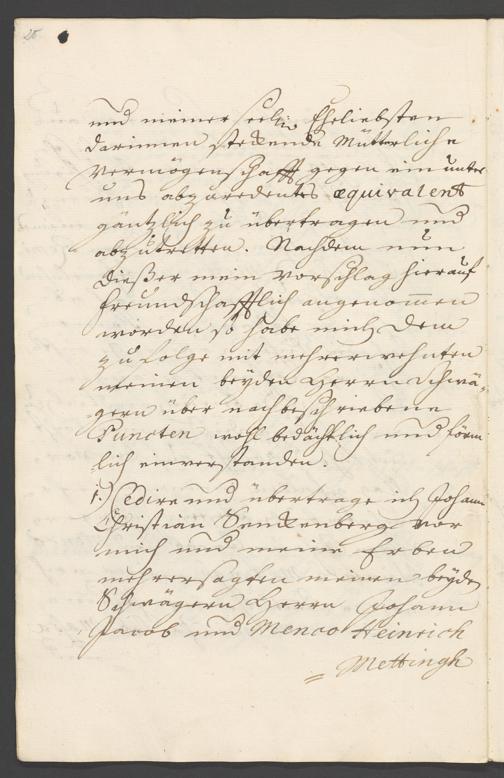 26.
und meiner seelig Eheliebsten
darinnen steckende Mütterliche
Vermögenschafft gegen ein unter
uns abzuredentes æquivalent
gäntzlich zu übertragen und
abzutretten. Nachdem nun
dießer mein Vorschlag hierauf
freundschafftlich angenommen
worden so habe mich dem
zu folge mit mehrerwehnten
meinen beyden Herrn Schwä-
gern über nachbeschriebene
Puncten wohl bedächtlich und förm
lich einverstanden.
1.) Cedire und übertrage ich Johann
Christian Senckenberg vor
mich und meine Erben
mehrersagten meinen beyden
Schwägern Herrn Johann
Jacob und Menco Heinrich
= Mettingh